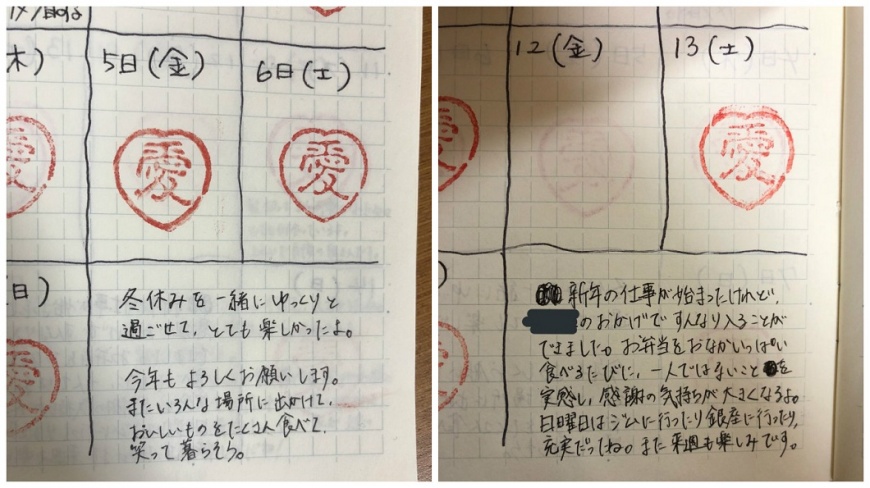 木)
5日(金)
6日(土)
愛
愛
日)
冬休みを一緒にゆっくりと
過ごせて、とても楽しかったよ。
今年もよろしくお願いします。
またいろんな場所に出かけて、
おいしいものをたくさん食べて、
笑って暮らそう。
12(金)
13(土)
愛
新年の仕事が始まったけれど、
のおかげですんなり入ることが
できました。お弁当をおなかいっぱい
食べるたびに、一人ではないことを
実感し、感謝の気持ちが大くなるよ。
日曜日はジムに行ったり銀座に行ったり、
充実だったね。また来週も楽しみです。